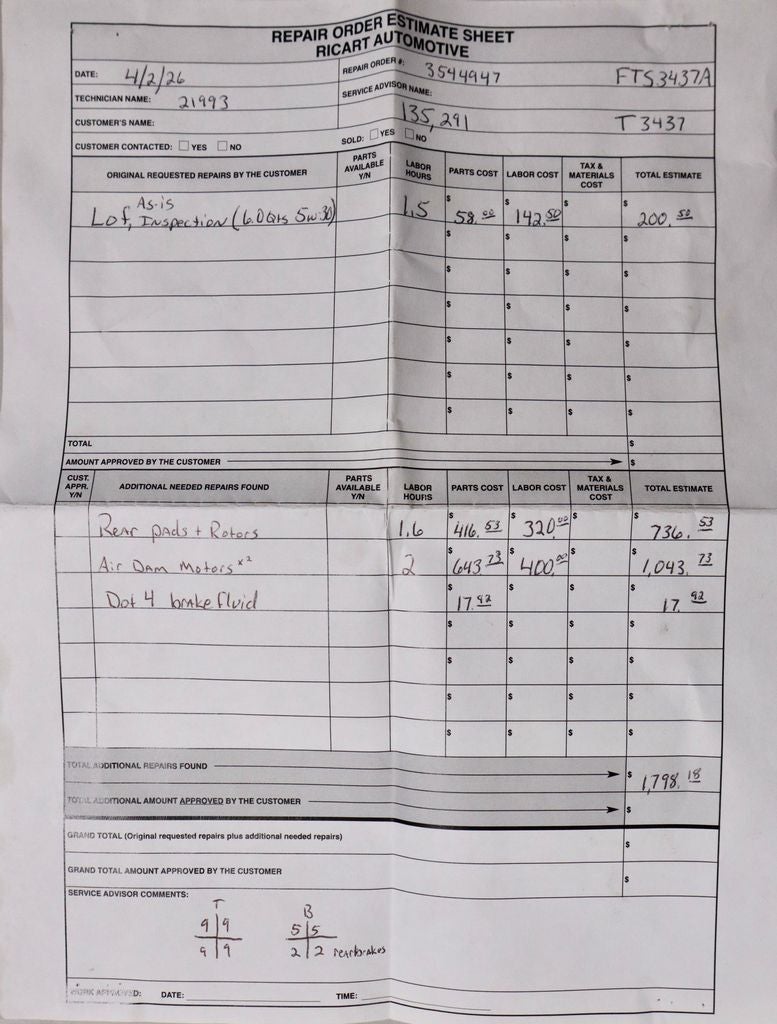 REPAIR ORDER ESTIMATE SHEET
RICART AUTOMOTIVE
DATE: 4/2/26 REPAIR ORDER #: 3544947 FTS3437A
TECHNICIAN NAME: 21993 SERVICE ADVISOR NAME:
CUSTOMER'S NAME: 135,291 T3437
CUSTOMER CONTACTED: YES NO SOLD: YES NO
ORIGINAL REQUESTED REPAIRS BY THE CUSTOMER PARTS AVAILABLE Y/N LABOR HOURS PARTS COST LABOR COST TAX & MATERIALS COST TOTAL ESTIMATE
As-is
Lof, Inspection (6.0 Qts 5w-30) 1.5 $58.00 $142.50 $ $200.50
$ $ $ $
$ $ $ $
$ $ $ $
$ $ $ $
$ $ $ $
$ $ $ $
TOTAL $
AMOUNT APPROVED BY THE CUSTOMER $
CUST. APPR. Y/N ADDITIONAL NEEDED REPAIRS FOUND PARTS AVAILABLE Y/N LABOR HOURS PARTS COST LABOR COST TAX & MATERIALS COST TOTAL ESTIMATE
Rear pads + Rotors 1.6 $416.53 $320.00 $ $736.53
Air Dam Motors x2 2 $643.73 $400.00 $ $1,043.73
Dot 4 brake fluid $17.92 $ $ $17.92
$ $ $ $
$ $ $ $
$ $ $ $
$ $ $ $
TOTAL ADDITIONAL REPAIRS FOUND $1,798.18
TOTAL ADDITIONAL AMOUNT APPROVED BY THE CUSTOMER $
GRAND TOTAL (Original requested repairs plus additional needed repairs) $
GRAND TOTAL AMOUNT APPROVED BY THE CUSTOMER $
SERVICE ADVISOR COMMENTS:
T B
9 9 5 5
9 9 2 2 rear brakes
WORK APPROVED: DATE: TIME: